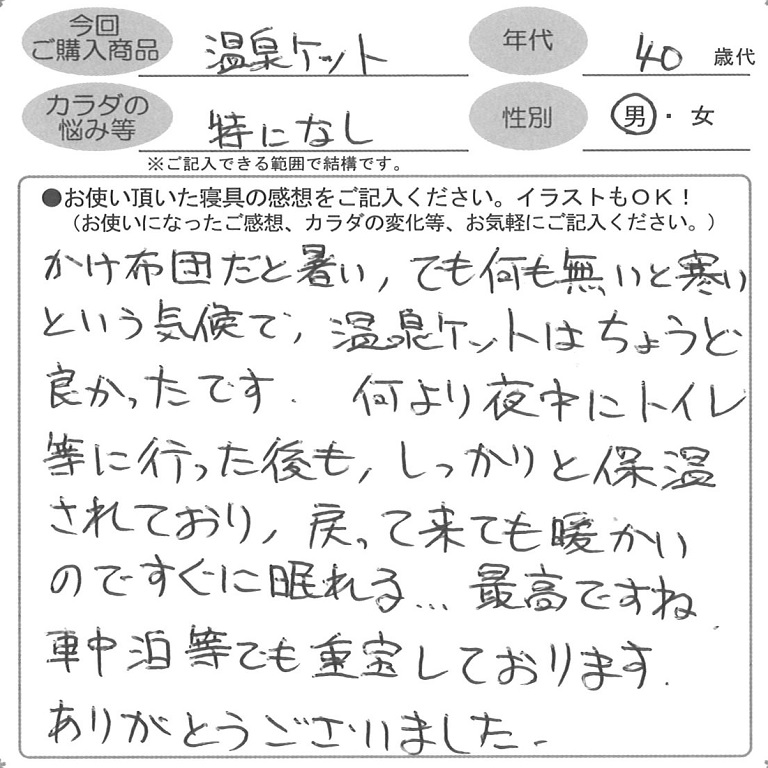 今回
ご購入商品
温泉ケット
年代
40 歳代
カラダの
悩み等
特になし
性別
男・女
※ご記入できる範囲で結構です。
●お使い頂いた寝具の感想をご記入ください。イラストもOK！
（お使いになったご感想、カラダの変化等、お気軽にご記入ください。）
かけ布団だと暑い，でも何も無いと寒い
という気候で，温泉ケットはちょうど
良かったです．何より夜中にトイレ
等に行った後も，しっかりと保温
されており，戻って来ても暖かい
のですぐに眠れる…最高ですね．
車中泊等でも重宝しております．
ありがとうございました．